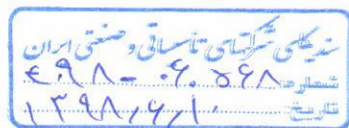 سندیکای شرکتهای تأسیساتی و صنعتی ایران
شماره ۴۰۹۸ - ۰۶۰۵۶۸
تاریخ ۱۳۹۸/۶/۱۰